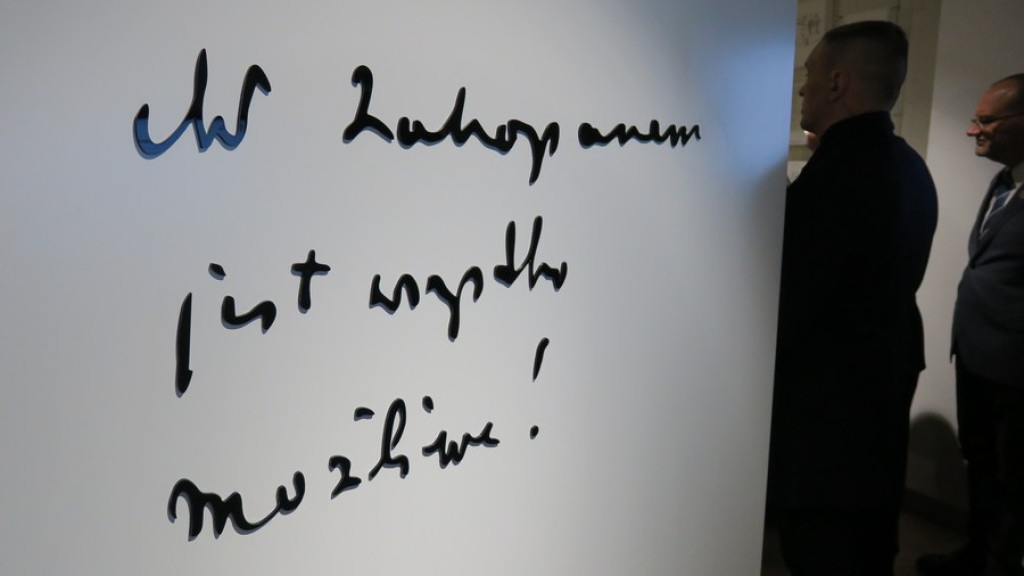 W Zakopanem
jest wszystko
możliwe!